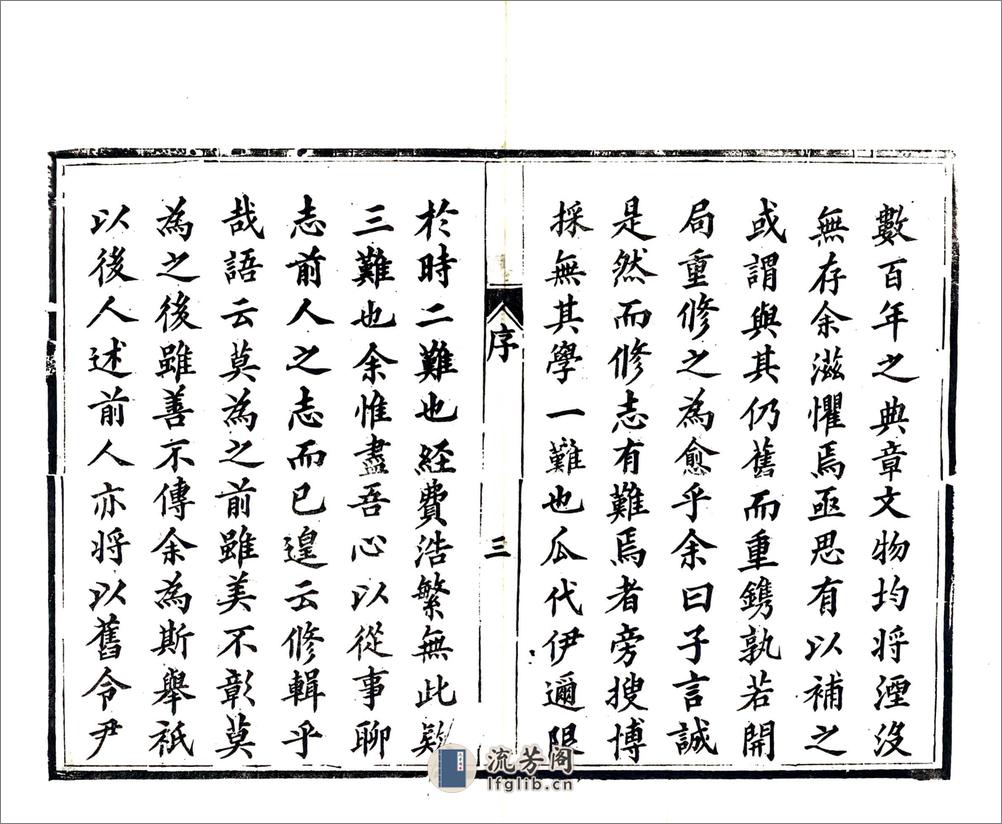 數百年之典章文物均將湮沒
無存余滋懼焉亟思有以補之
或謂與其仍舊而重鐫孰若開
局重修之為愈乎余曰子言誠
是然而修志有難焉者旁搜博
採無其學一難也瓜代伊邇限
序
三
於時二難也經費浩繁無此欵
三難也余惟盡吾心以從事聊
志前人之志而已遑云修輯乎
哉語云莫為之前雖美不彰莫
為之後雖善不傳余為斯舉祇
以後人述前人亦將以舊令尹
流芳阁
lfglib.cn